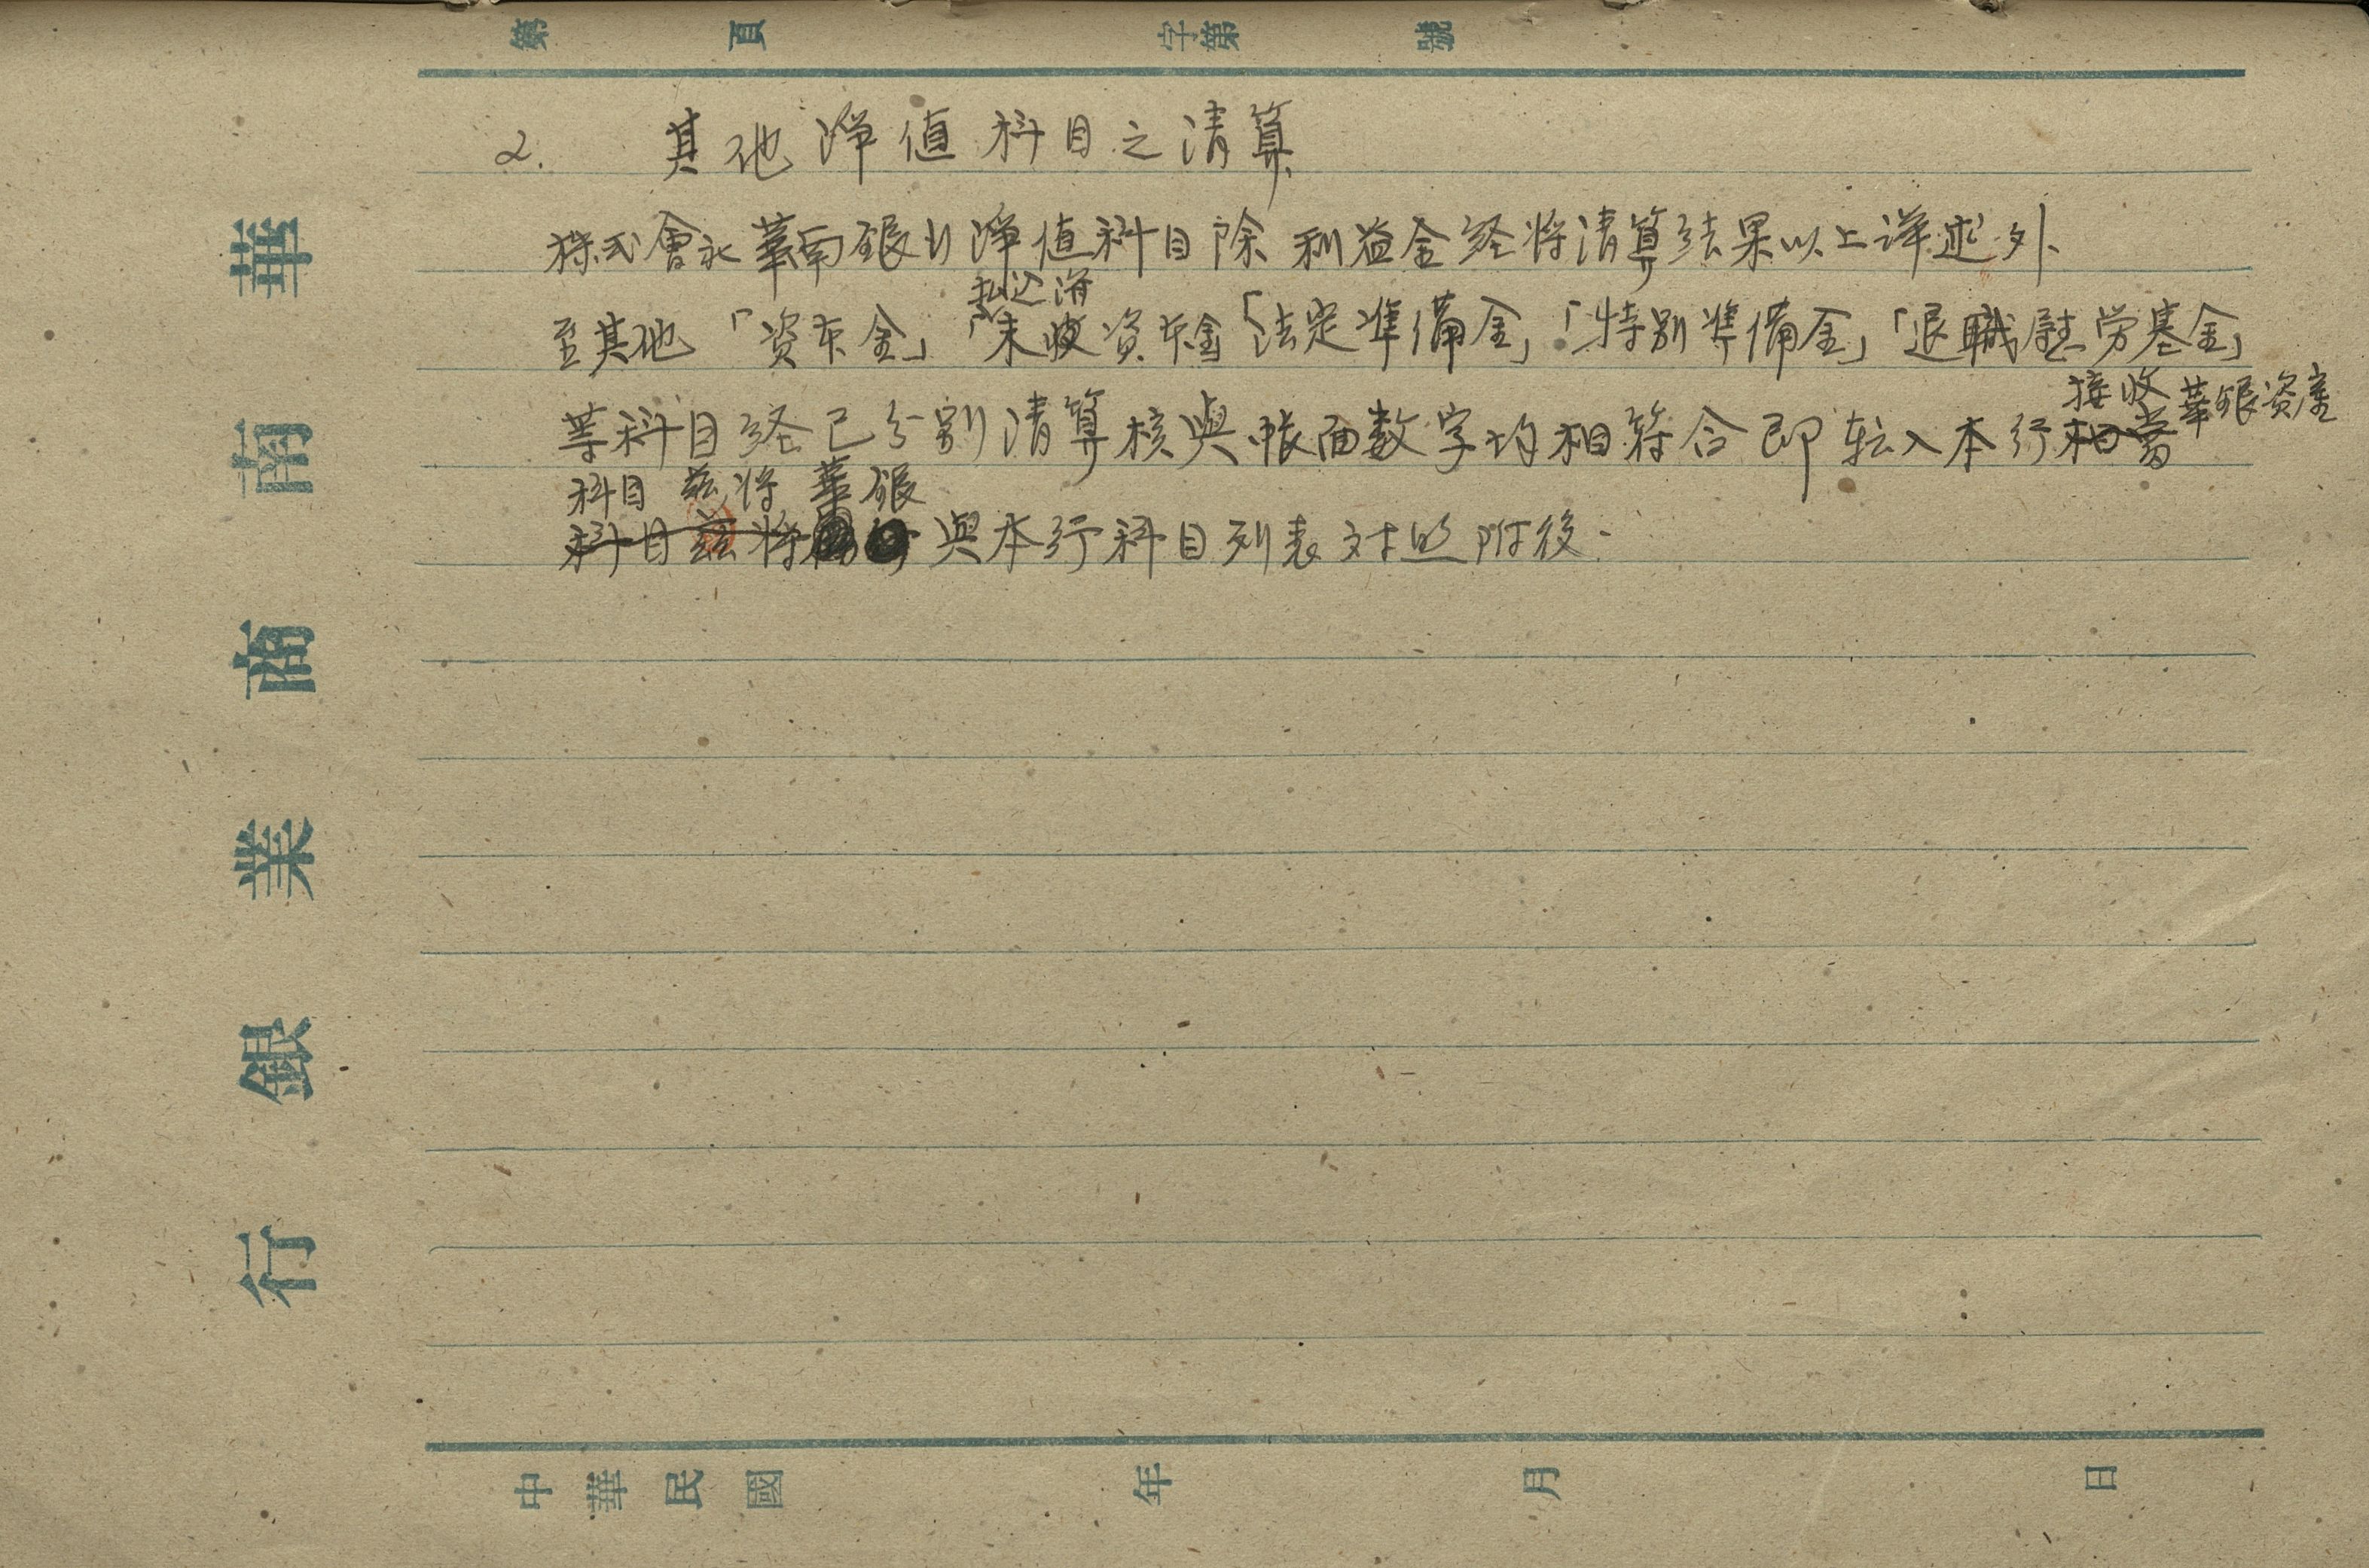 第 頁 字第 號
華南商業銀行
2. 其他淨值科目之清算
株式會社華南銀行淨值科目除利益金経將清算结果以上详述外
払込済
至其他「资本金」「未收资本金「法定準備金」「特別準備金」「退職慰労基金」
接收華銀资産
等科目経已分別清算核與帳面数字均相符合即転入本行相当
科目茲將華銀
科目茲將 與本行科目列表対照附後
中華民國 年 月 日